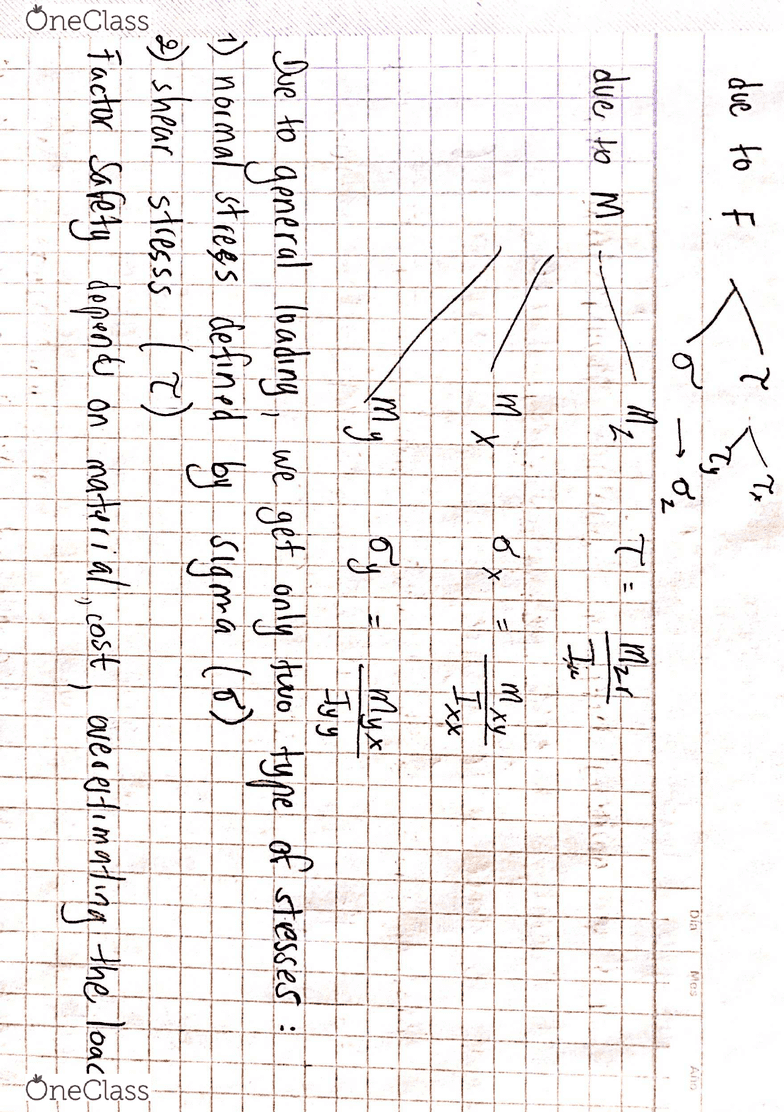 OneClass
due to F < τ < τx
τy
σ → σz
due to M
Mz τ = Mzr
Mx σx = Mxy / Ixx
My σy = Myx / Iyy
Due to general loading, we get only two type of stresses :
1) normal stress defined by sigma (σ)
2) shear stresss (τ)
Factor Safety depends on material, cost, overestimating the loac
Dia Mes Año
OneClass